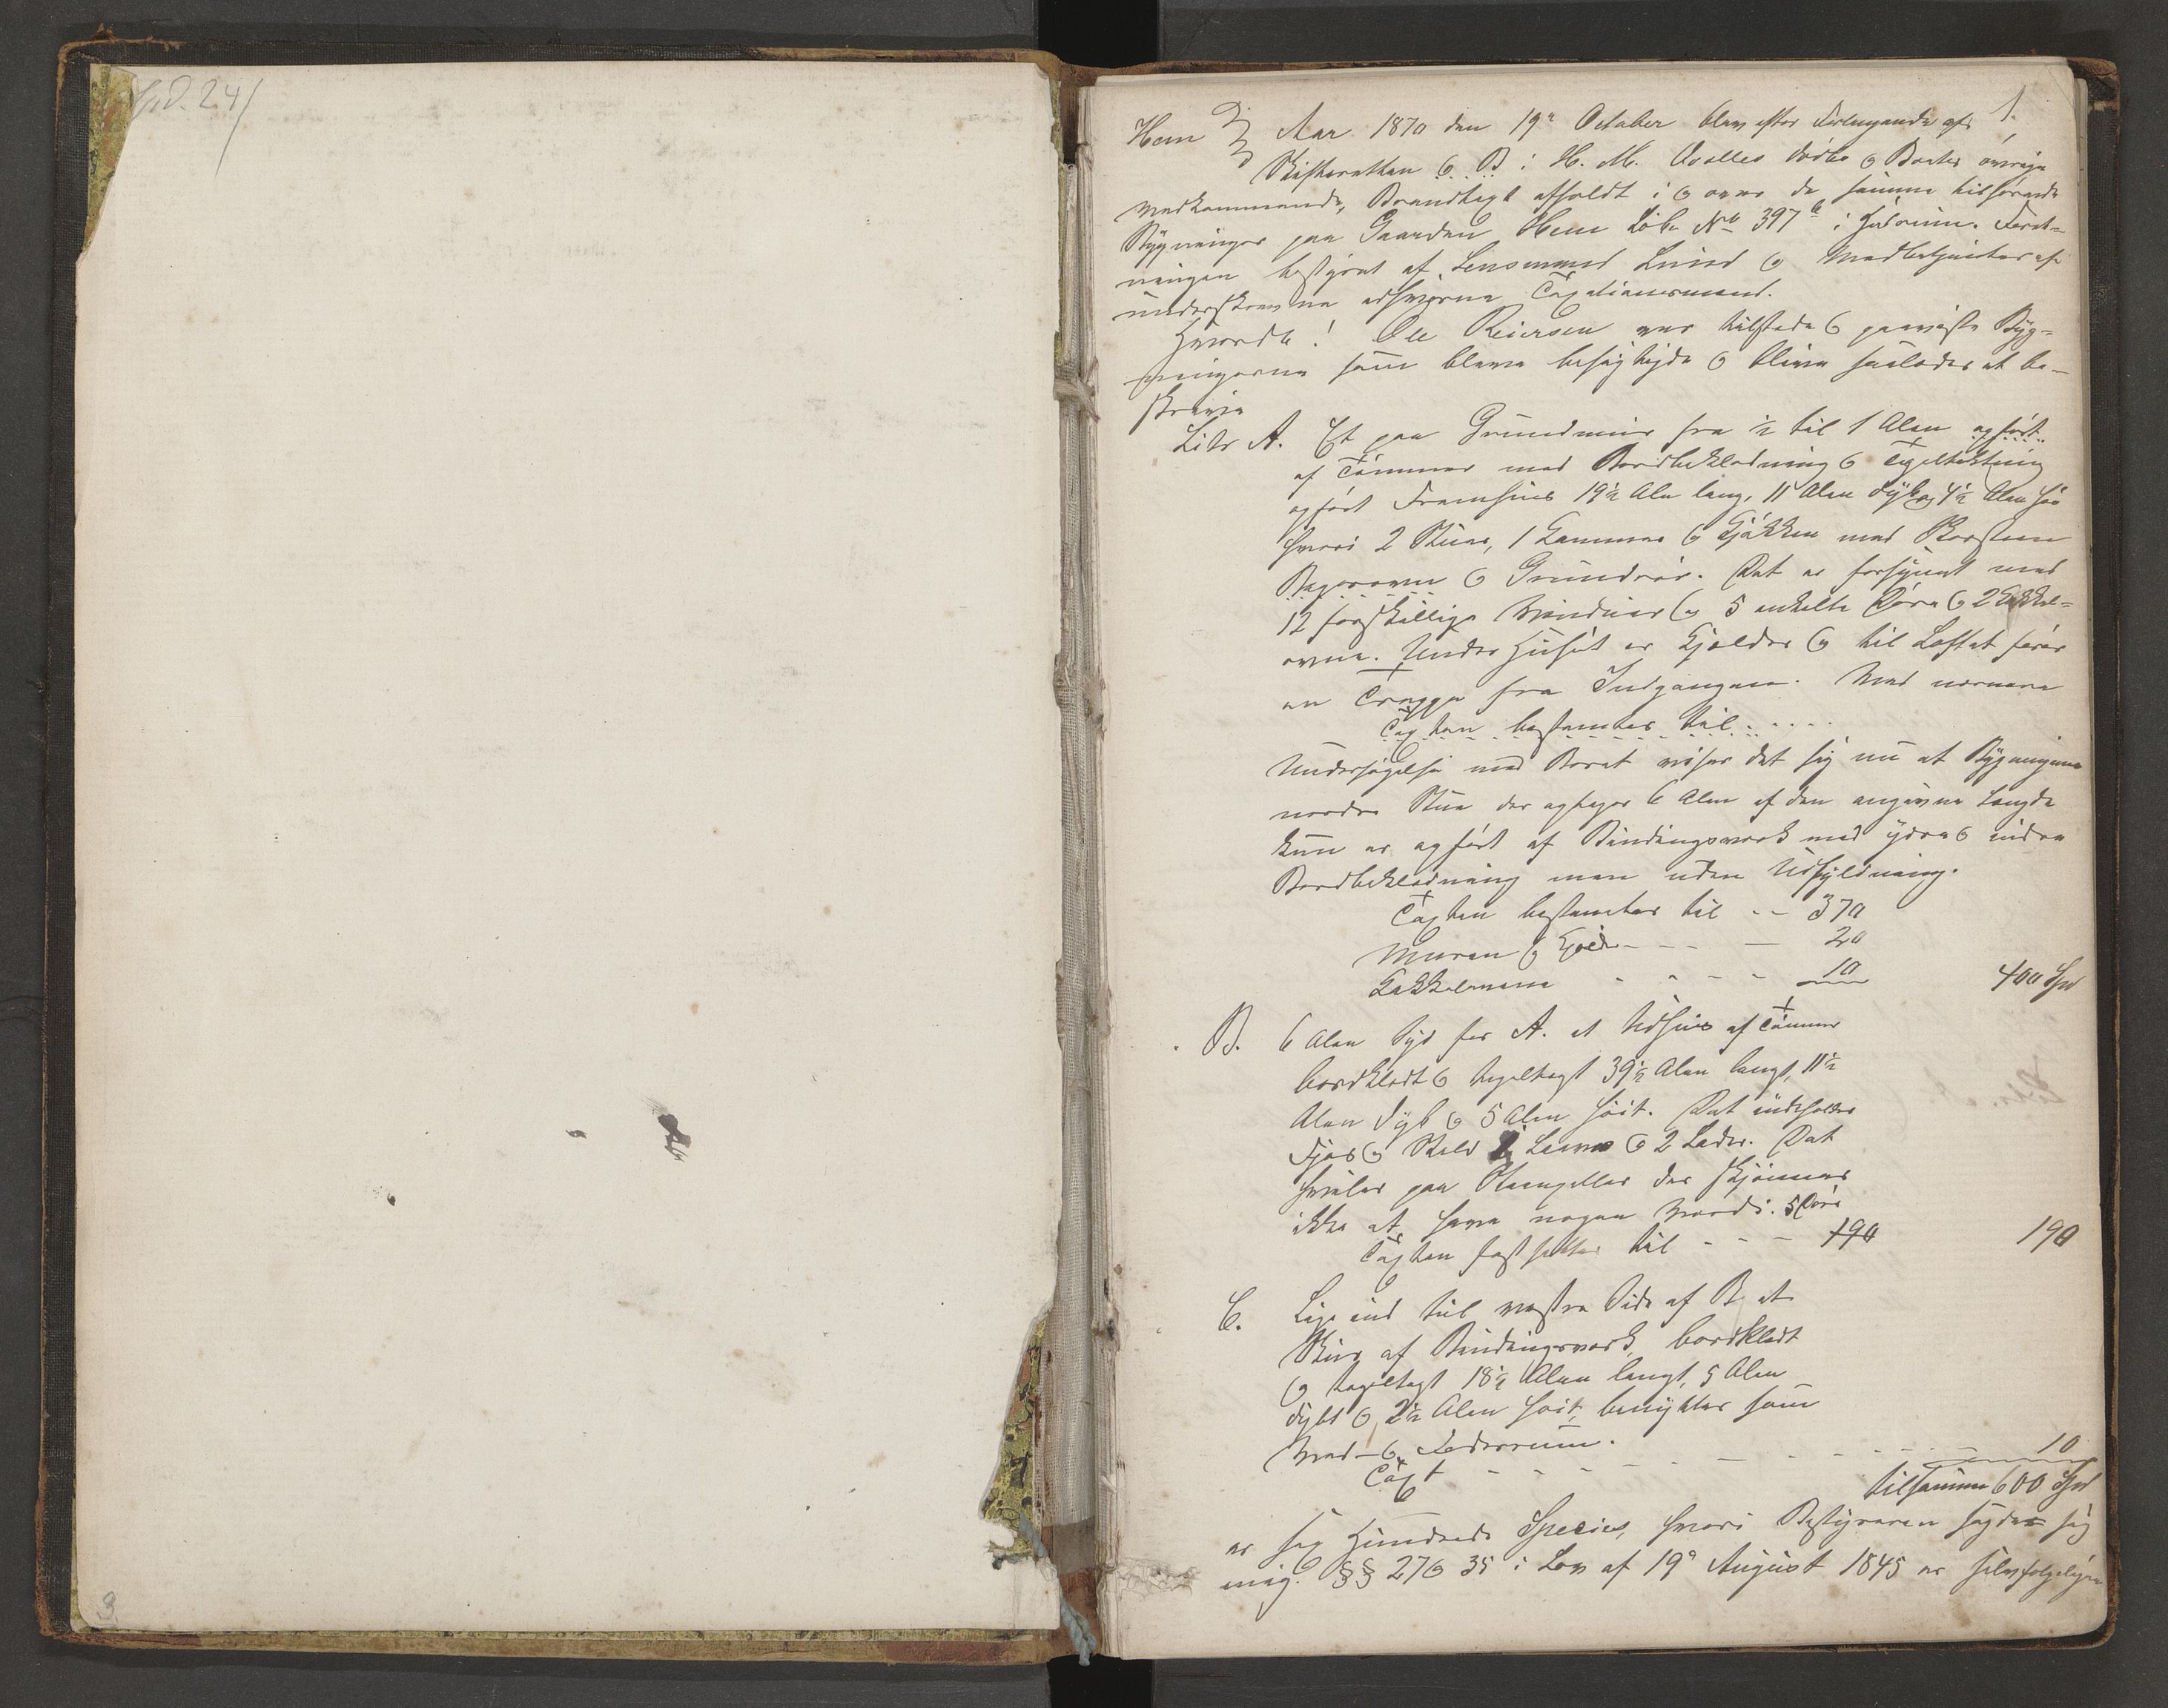 1.
Hem Aar 1870 den 19e October blev efter Forlangende af
Skifteretten & B i H. M. Aoalles Dødsbo & Boets øvrige
vedkommende, Brandtaxt afholdt i & over de samme tilhørende
Bygninger paa Gaarden Hem Løbe No 397 i Forret-
ningen bestyret af Lensmand Lund & Medbetjenter af
underskrevne edsvorne Taxationsmænd.
Hvorda! Ole Reiersen var tilstede & paaviste Byg-
ningerne som bleve besigtigede & bliver saaledes at be-
skrive
Litr A. Et paa Grundmuur fra ½ til 1 Alen opført
af Tømmer med Bordbeklædning & Tegltækning
opført Framhuus 19½ Aln lang, 11 Alen dyb og 4½ Alen høi
hvori 2 Stuer, 1 Kammer & Kjøkken med Skorsteen
Bagerovn & Grundrør. Det er forsynet med
12 forskjellige Vinduer og 5 enkelte Døre & 2 Kakkel-
ovne. Under Huset er Kjælder og til Loftet fører
en Trappe fra Indgangen. Ved nærmere
Taxten bestemtes til . . . .
Undersøgelse med Boret viser det sig nu at Bygningens
nordre Stue der optager 6 Alen af den angivne Længde
kun er opført af Bindingsverk med ydre & indre
Bordbeklædning men uden Udfyldning.
Taxten bestemtes til - - 370
Muren & Kjæld - - - - 20
Kakkelovnene - - - - 10 400 Spd
B. 6 Alen Syd for A. et Udhuus af Tømmer
bordklædt & tegltagt 39½ Alen langt, 11½
Alen dybt & 5 Alen høit. Det indeholder
Fjøs & Stald 1 Laave & 2 Lader. Det
hviler paa Steenpiller der skjønnes
ikke at have nogen Værdi. 5 Døre
Taxten fastsættes til - - - 190 190
C. Lige ind til vestre Side af B. et
Skur af Bindingsverk, bordklædt
& tegltagt 18½ Alen langt, 5 Alen
dybt & 2½ Alen høit, benyttes som
Ved- & Foderrum.
Taxt - - - - - - - - - 10
tilsammen 600 Spd
er sex Hundrede Species, hvori Bestyreren sagde sig
enig. §§ 27 & 35 i Lov af 19e August 1845 er selvfølgeligen
3.